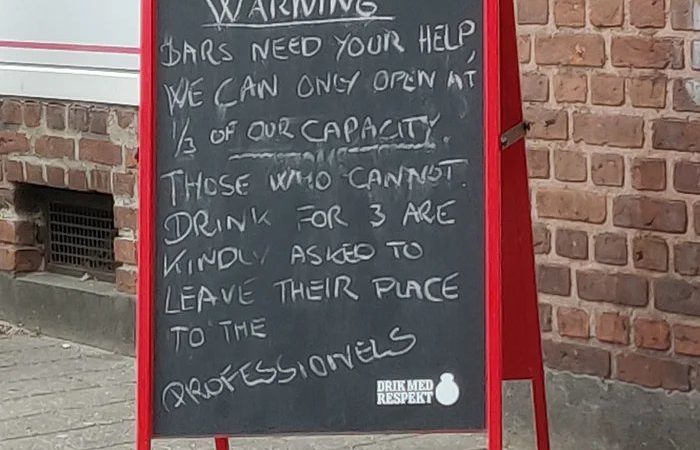 WARNING
BARS NEED YOUR HELP,
WE CAN ONLY OPEN AT
1/3 OF OUR CAPACITY.
THOSE WHO CANNOT.
DRINK FOR 3 ARE
KINDLY ASKED TO
LEAVE THEIR PLACE
TO THE
PROFESSIONELS
DRIK MED
RESPEKT